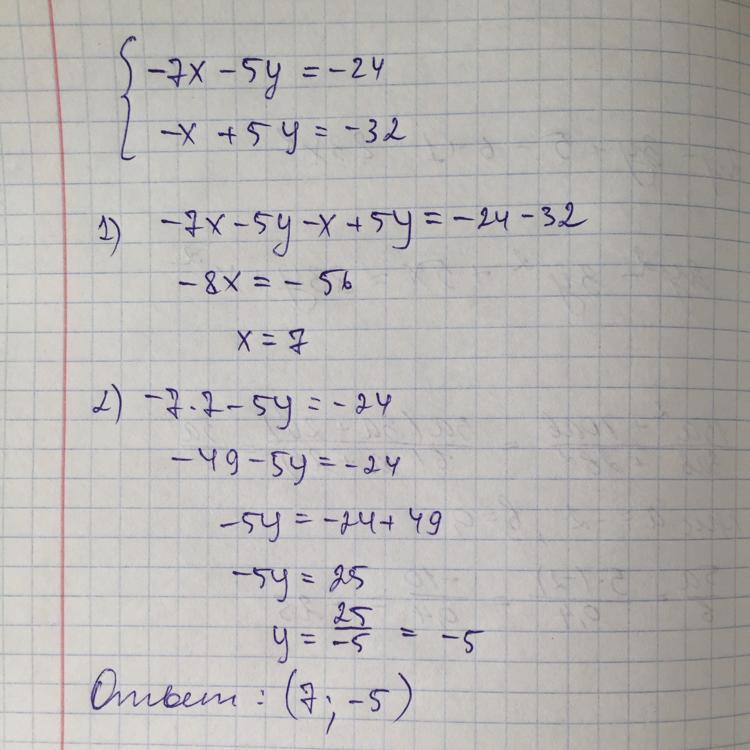 -7x - 5y = -24
-x + 5y = -32
1) -7x - 5y - x + 5y = -24 - 32
-8x = -56
x = 7
2) -7·7 - 5y = -24
-49 - 5y = -24
-5y = -24 + 49
-5y = 25
y = 25/-5 = -5
Ответ: (7; -5)